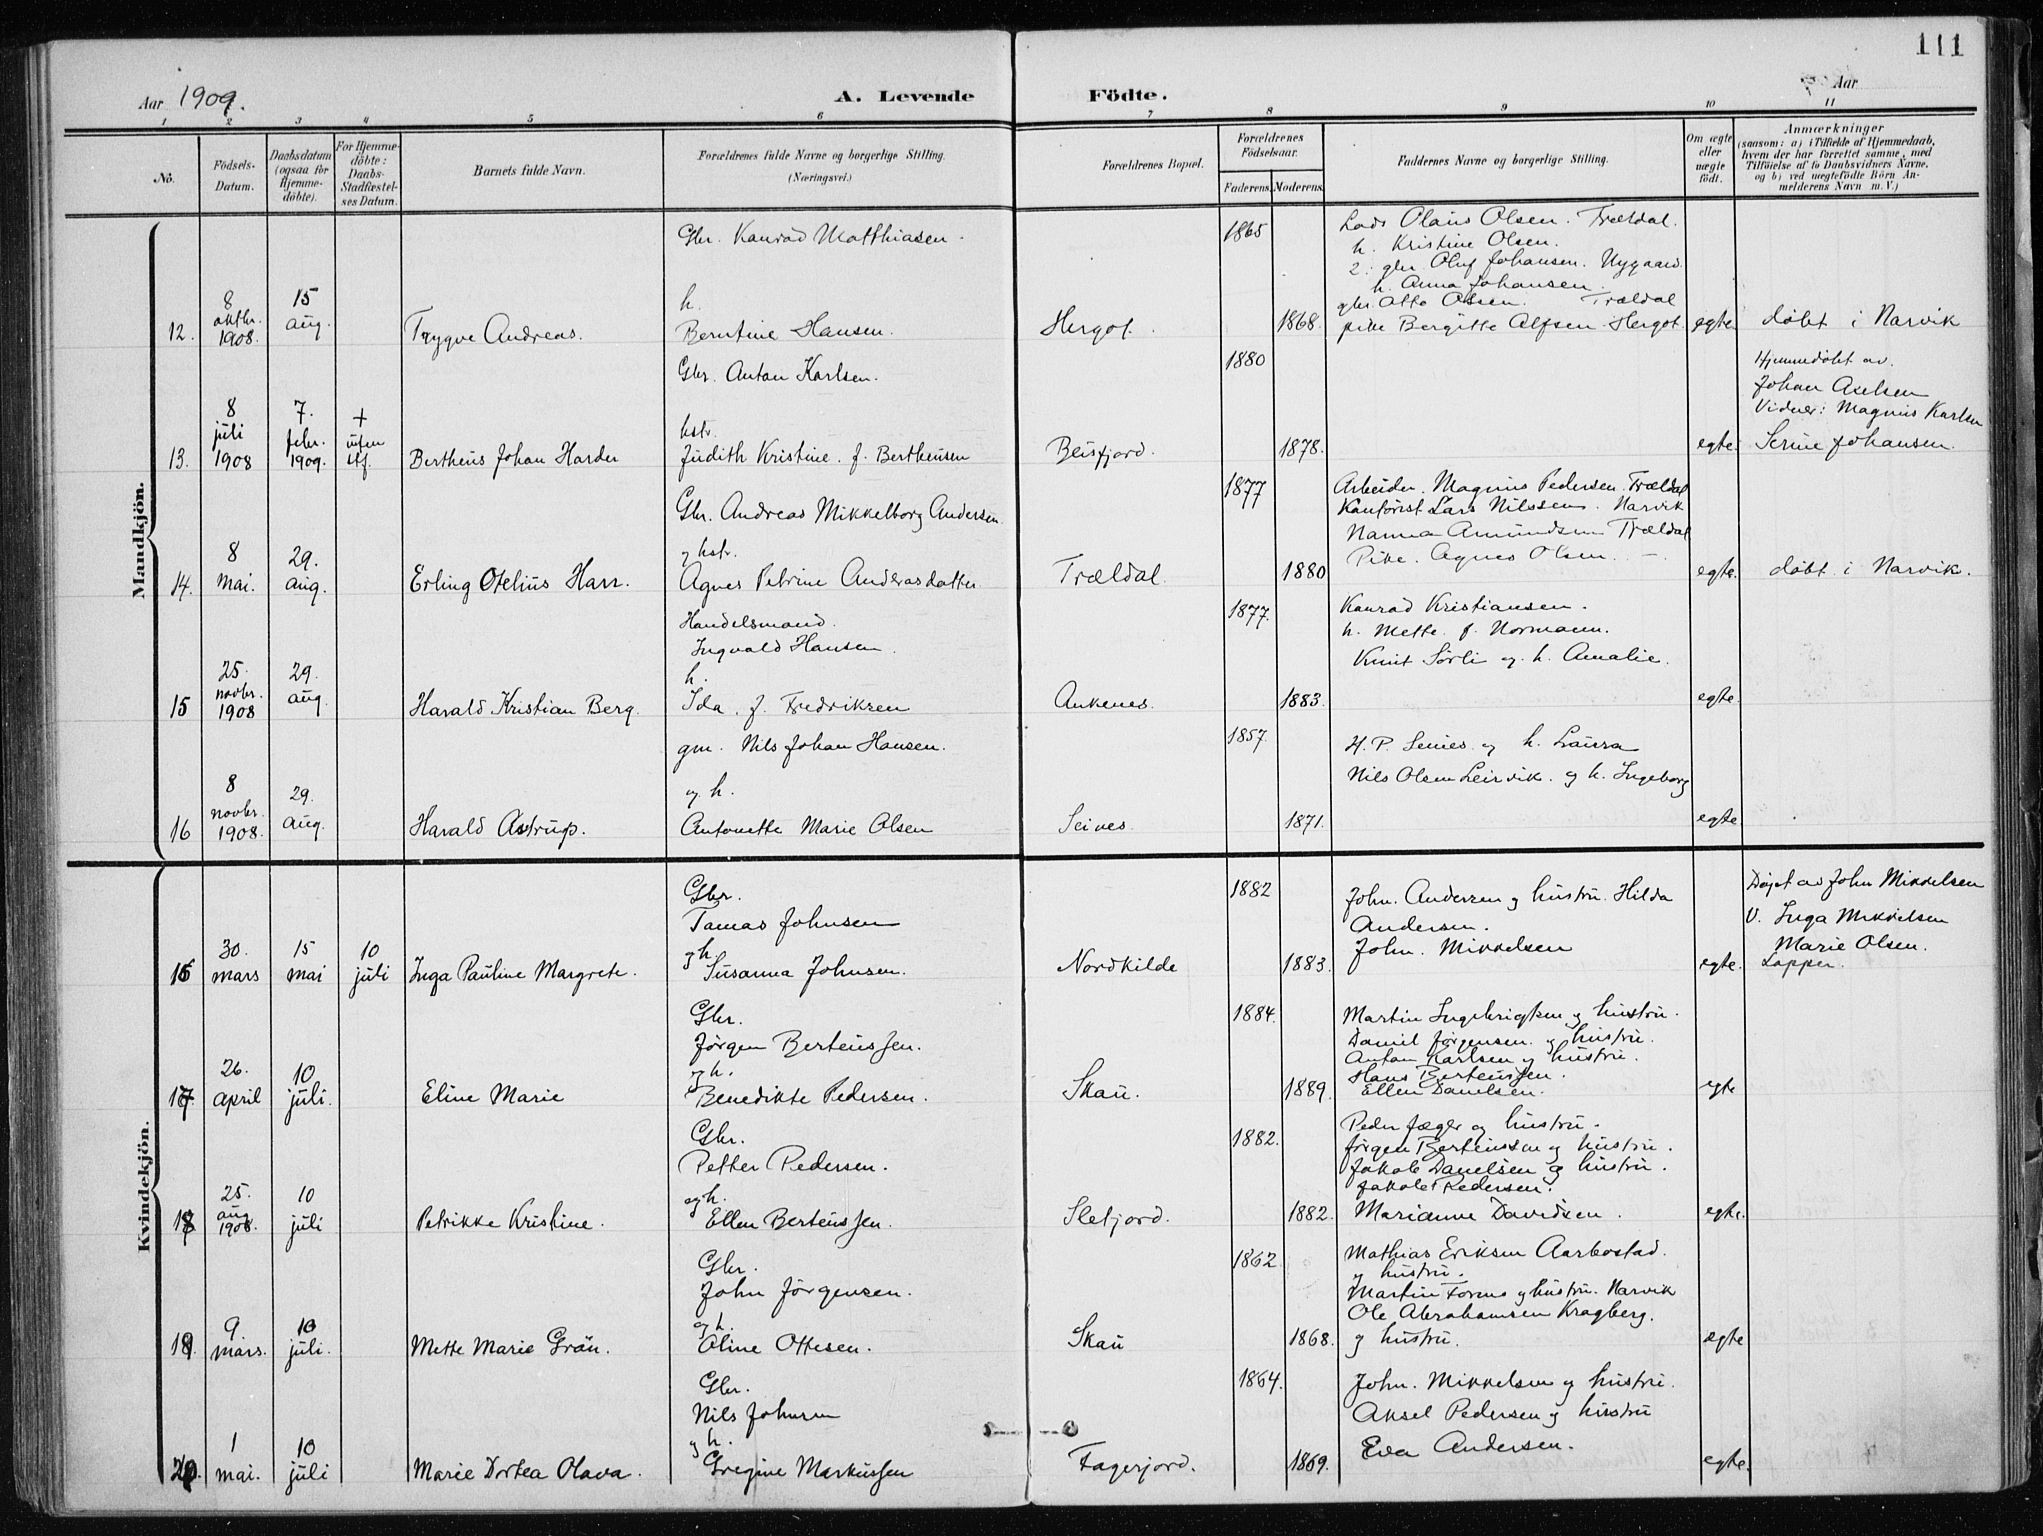 111
Aar 1909.
A. Levende
Födte.
Aar
1 2 3 4 5 6 7 8 9 10 11
No.
Födsels-Datum.
Daabsdatum (ogsaa for Hjemme-döbte).
For Hjemme-döbte: Daabs-Stadfæstel-ses Datum.
Barnets fulde Navn.
Forældrenes fulde Navne og borgerlige Stilling.
(Næringsvei.)
Forældrenes Bopæl.
Forældrenes Födselsaar.
Faderens. Moderens.
Faddernes Navne og borgerlige Stilling.
Om ægte eller uægte födt.
Anmærkninger
(saasom: a) i Tilfælde af Hjemmedaab, hvem der har forrettet samme, med Tilföielse af to Daabsvidners Navne, og b) ved uægtefödte Börn An-melderens Navn m. V.)
Mandkjön.
12. 8 oktbr. 1908. 15 aug. Trygve Andreas.
Gbr. Konrad Matthiasen.
h.
Berntine Hansen.
Hergot. 1865 1868.
Olaus Olsen. Trældal.
h. Kristine Olsen.
2. gbr Oluf Johansen. Nygaard.
h. Anna Johansen.
gbr. Otto Olsen. Trældal
pike Bergitte Alfsen Hergot.
egte døbt i Narvik
13. 8 juli 1908 7. febr. 1909. + uten stf. Bertheus Johan Harder
Gbr. Anton Karlsen.
hstr.
Judith Kristine. f. Bertheusen
Beisfjord. 1880 1878.
egte.
Hjemmedøbt av
Johan Axelsen
Vidner: Magnus Karlsen
Serine Johansen.
14. 8 mai. 29. aug. Erling Otelius Harr.
Gbr. Andreas Mikkelborg Andersen
og hstr.
Agnes Petrine Andersdatter
Trældal. 1877 1880
Arbeider. Magnus Pedersen. Trældal
Kontorist Lars Nilssen. Narvik
Nanna Amundsen Trældal
Pike. Agnes Olsen. —
egte. døbt i Narvik.
15 25. novbr. 1908 29. aug. Harald Kristian Berg.
Handelsmand.
Ingvald Hansen.
h.
Ida. f. Fredriksen
Ankenes. 1877. 1883.
Konrad Kristiansen.
h. Mette. f. Normann.
Knut Sørli og h. Amalie.
egte.
16 8 novbr. 1908. 29. aug. Harald Astrup.
gm. Nils Johan Hansen.
og h.
Antonette Marie Olsen
Seines. 1857. 1871.
H. P. Seines og h. Laura
Nils Olsen Leirvik. og h. Ingeborg
egte
Kvindekjön.
16 30. mars 15 mai 10 juli Inga Pauline Margrete.
Gbr.
Tomas Johnsen
og h
Susanna Johnsen.
Nordkilde 1882 1883.
John. Andersen og hustru. Hilda
Andersen.
John. Mikkelsen
egte.
Døpt av John Mikkelsen
V. Inga Mikkelsen
Marie Olsen.
Lapper.
17 26. april 10 juli. Eline Marie
Gbr.
Jørgen Berteussen.
og h.
Benedikte Pedersen.
Skau. 1884. 1889.
Martin Ingebrigtsen og hustru.
Daniel Jørgensen. og hustru.
Anton Karlsen og hustru.
Hans Berteussen.
Ellen Danielsen.
egte
18 25. aug 1908. 10 juli Petrikke Kristine.
Gbr.
Petter Pedersen.
og h.
Ellen Berteussen.
Sletjord. 1882. 1882.
Peder Jæger og hustru.
Jørgen Berteussen og hustru.
Jakob Danielsen og hustru.
Jakob Pedersen.
Marianne Davidsen.
egte.
19 9. mars. 10 juli. Mette Marie Grøn.
Gbr.
John Jørgensen.
og h.
Oline Ottesen.
Skau 1862 1868.
Mathias Eriksen Aarbostad.
og hustru.
Martin og hustru. Narvik
Ole Abrahamsen Kragberg.
og hustru.
ægte
20. 1 mai. 10 juli Marie Dortea Olava.
Gbr.
Nils Johnsen
og h.
Gregine Markussen
Fagerjord. 1864. 1869.
John. Mikkelsen og hustru.
Aksel Pedersen og hustru
Eva Andersen.
egte.